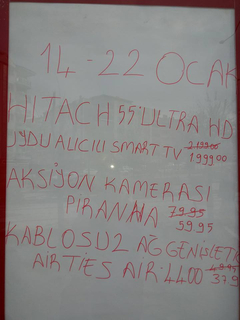 14-22 OCAK
HITACH 55" ULTRA HD
UYDU ALICILI SMART TV 2.199.00
1999 00
AKSİYON KAMERASI
PİRANHA 79.95
59 95
KABLOSUZ AĞ GENİŞLETİ
AİRTİES AİR.4400
379